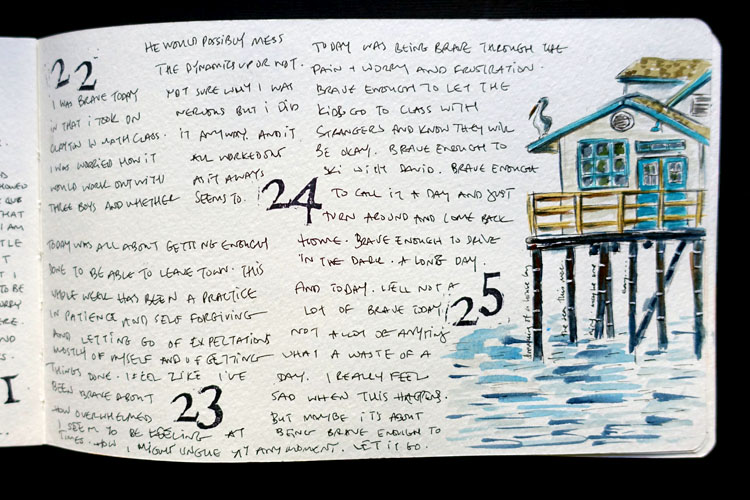 22
I WAS BRAVE TODAY
IN THAT I TOOK ON
CLAYTON IN MATH CLASS.
I WAS WORRIED HOW IT
WOULD WORK OUT WITH
THREE BOYS AND WHETHER
HE WOULD POSSIBLY MESS
THE DYNAMICS UP OR NOT.
NOT SURE WHY I WAS
NERVOUS BUT I DID
IT ANYWAY. AND IT
ALL WORKED OUT
AS IT ALWAYS
SEEMS TO.
TODAY WAS ALL ABOUT GETTING ENOUGH
DONE TO BE ABLE TO LEAVE TOWN. THIS
WHOLE WEEK HAS BEEN A PRACTICE
IN PATIENCE AND SELF FORGIVING
AND LETTING GO OF EXPECTATIONS
MOSTLY OF MYSELF AND OF GETTING
THINGS DONE. I FEEL LIKE I'VE
BEEN BRAVE ABOUT
HOW OVERWHELMED
23
I SEEM TO BE FEELING AT
TIMES. HOW I MIGHT UNGLUE AT ANY MOMENT. LET IT GO.
TODAY WAS BEING BRAVE THROUGH THE
PAIN + WORRY AND FRUSTRATION.
BRAVE ENOUGH TO LET THE
KIDS GO TO CLASS WITH
STRANGERS AND KNOW THEY WILL
BE OKAY. BRAVE ENOUGH TO
SKI WITH DAVID. BRAVE ENOUGH
24
TO CALL IT A DAY AND JUST
TURN AROUND AND COME BACK
HOME. BRAVE ENOUGH TO DRIVE
IN THE DARK. A LONG DAY.
AND TODAY. WELL NOT A
LOT OF BRAVE TODAY.
25
NOT A LOT OF ANYTHING
WHAT A WASTE OF A
DAY. I REALLY FEEL
SAD WHEN THIS HAPPENS.
BUT MAYBE IT'S ABOUT
BEING BRAVE ENOUGH TO
house
the sea
maybe one
day...